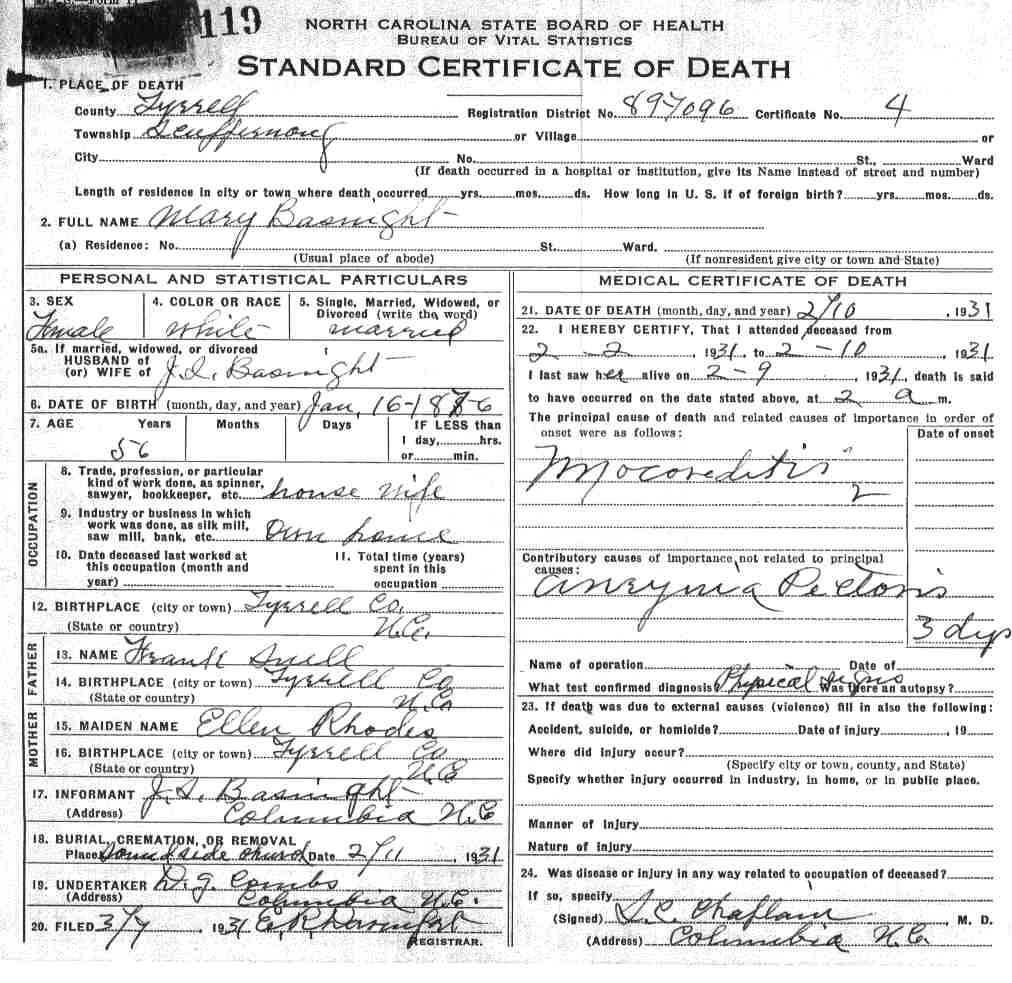 119
NORTH CAROLINA STATE BOARD OF HEALTH
BUREAU OF VITAL STATISTICS
STANDARD CERTIFICATE OF DEATH
1. PLACE OF DEATH
County Tyrrell Registration District No. 897096 Certificate No. 4
Township Scuppernong or Village or
City No. St., Ward
(If death occurred in a hospital or institution, give its Name instead of street and number)
Length of residence in city or town where death occurred yrs. mos. ds. How long in U. S. if of foreign birth? yrs. mos. ds.
2. FULL NAME Mary Basnight
(a) Residence: No. St. Ward.
(Usual place of abode) (If nonresident give city or town and State)
PERSONAL AND STATISTICAL PARTICULARS
3. SEX Female
4. COLOR OR RACE White
5. Single, Married, Widowed, or Divorced (write the word) married
5a. If married, widowed, or divorced
HUSBAND OF
(or) WIFE OF J. S. Basnight
6. DATE OF BIRTH (month, day, and year) Jan, 16-1876
7. AGE Years Months Days IF LESS than
56 1 day, hrs.
or min.
OCCUPATION
8. Trade, profession, or particular
kind of work done, as spinner,
sawyer, bookkeeper, etc. house wife
9. Industry or business in which
work was done, as silk mill,
saw mill, bank, etc. Own home
10. Date deceased last worked at
this occupation (month and
year)
11. Total time (years)
spent in this
occupation
12. BIRTHPLACE (city or town) Tyrrell Co.
(State or country) N.C.
FATHER
13. NAME Frank Snell
14. BIRTHPLACE (city or town) Tyrrell Co
(State or country) N.C
MOTHER
15. MAIDEN NAME Ellen Rhodes
16. BIRTHPLACE (city or town) Tyrrell Co
(State or country) N.C
17. INFORMANT J. S. Basnight
(Address) Columbia N.C
18. BURIAL, CREMATION, OR REMOVAL
Place Soundside church Date 2/11, 1931
19. UNDERTAKER D. G. Combs
(Address) Columbia N.C.
20. FILED 3/7 1931 E. R.
REGISTRAR.
MEDICAL CERTIFICATE OF DEATH
21. DATE OF DEATH (month, day, and year) 2/10, 1931
22. I HEREBY CERTIFY, That I attended deceased from
2-2 1931, to 2-10, 1931
I last saw her alive on 2-9, 1931, death is said
to have occurred on the date stated above, at 2 a m.
The principal cause of death and related causes of importance in order of
onset were as follows:
Date of onset
Mocoreditis
2
Contributory causes of importance not related to principal
causes:
Pectoris
3 dys
Name of operation Date of
What test confirmed diagnosis? Physical signs Was there an autopsy?
23. If death was due to external causes (violence) fill in also the following:
Accident, suicide, or homicide? Date of injury, 19
Where did injury occur?
(Specify city or town, county, and State)
Specify whether injury occurred in industry, in home, or in public place.
Manner of Injury
Nature of Injury
24. Was disease or injury in any way related to occupation of deceased?
If so, specify
(Signed) , M. D.
(Address) Columbia N.C.